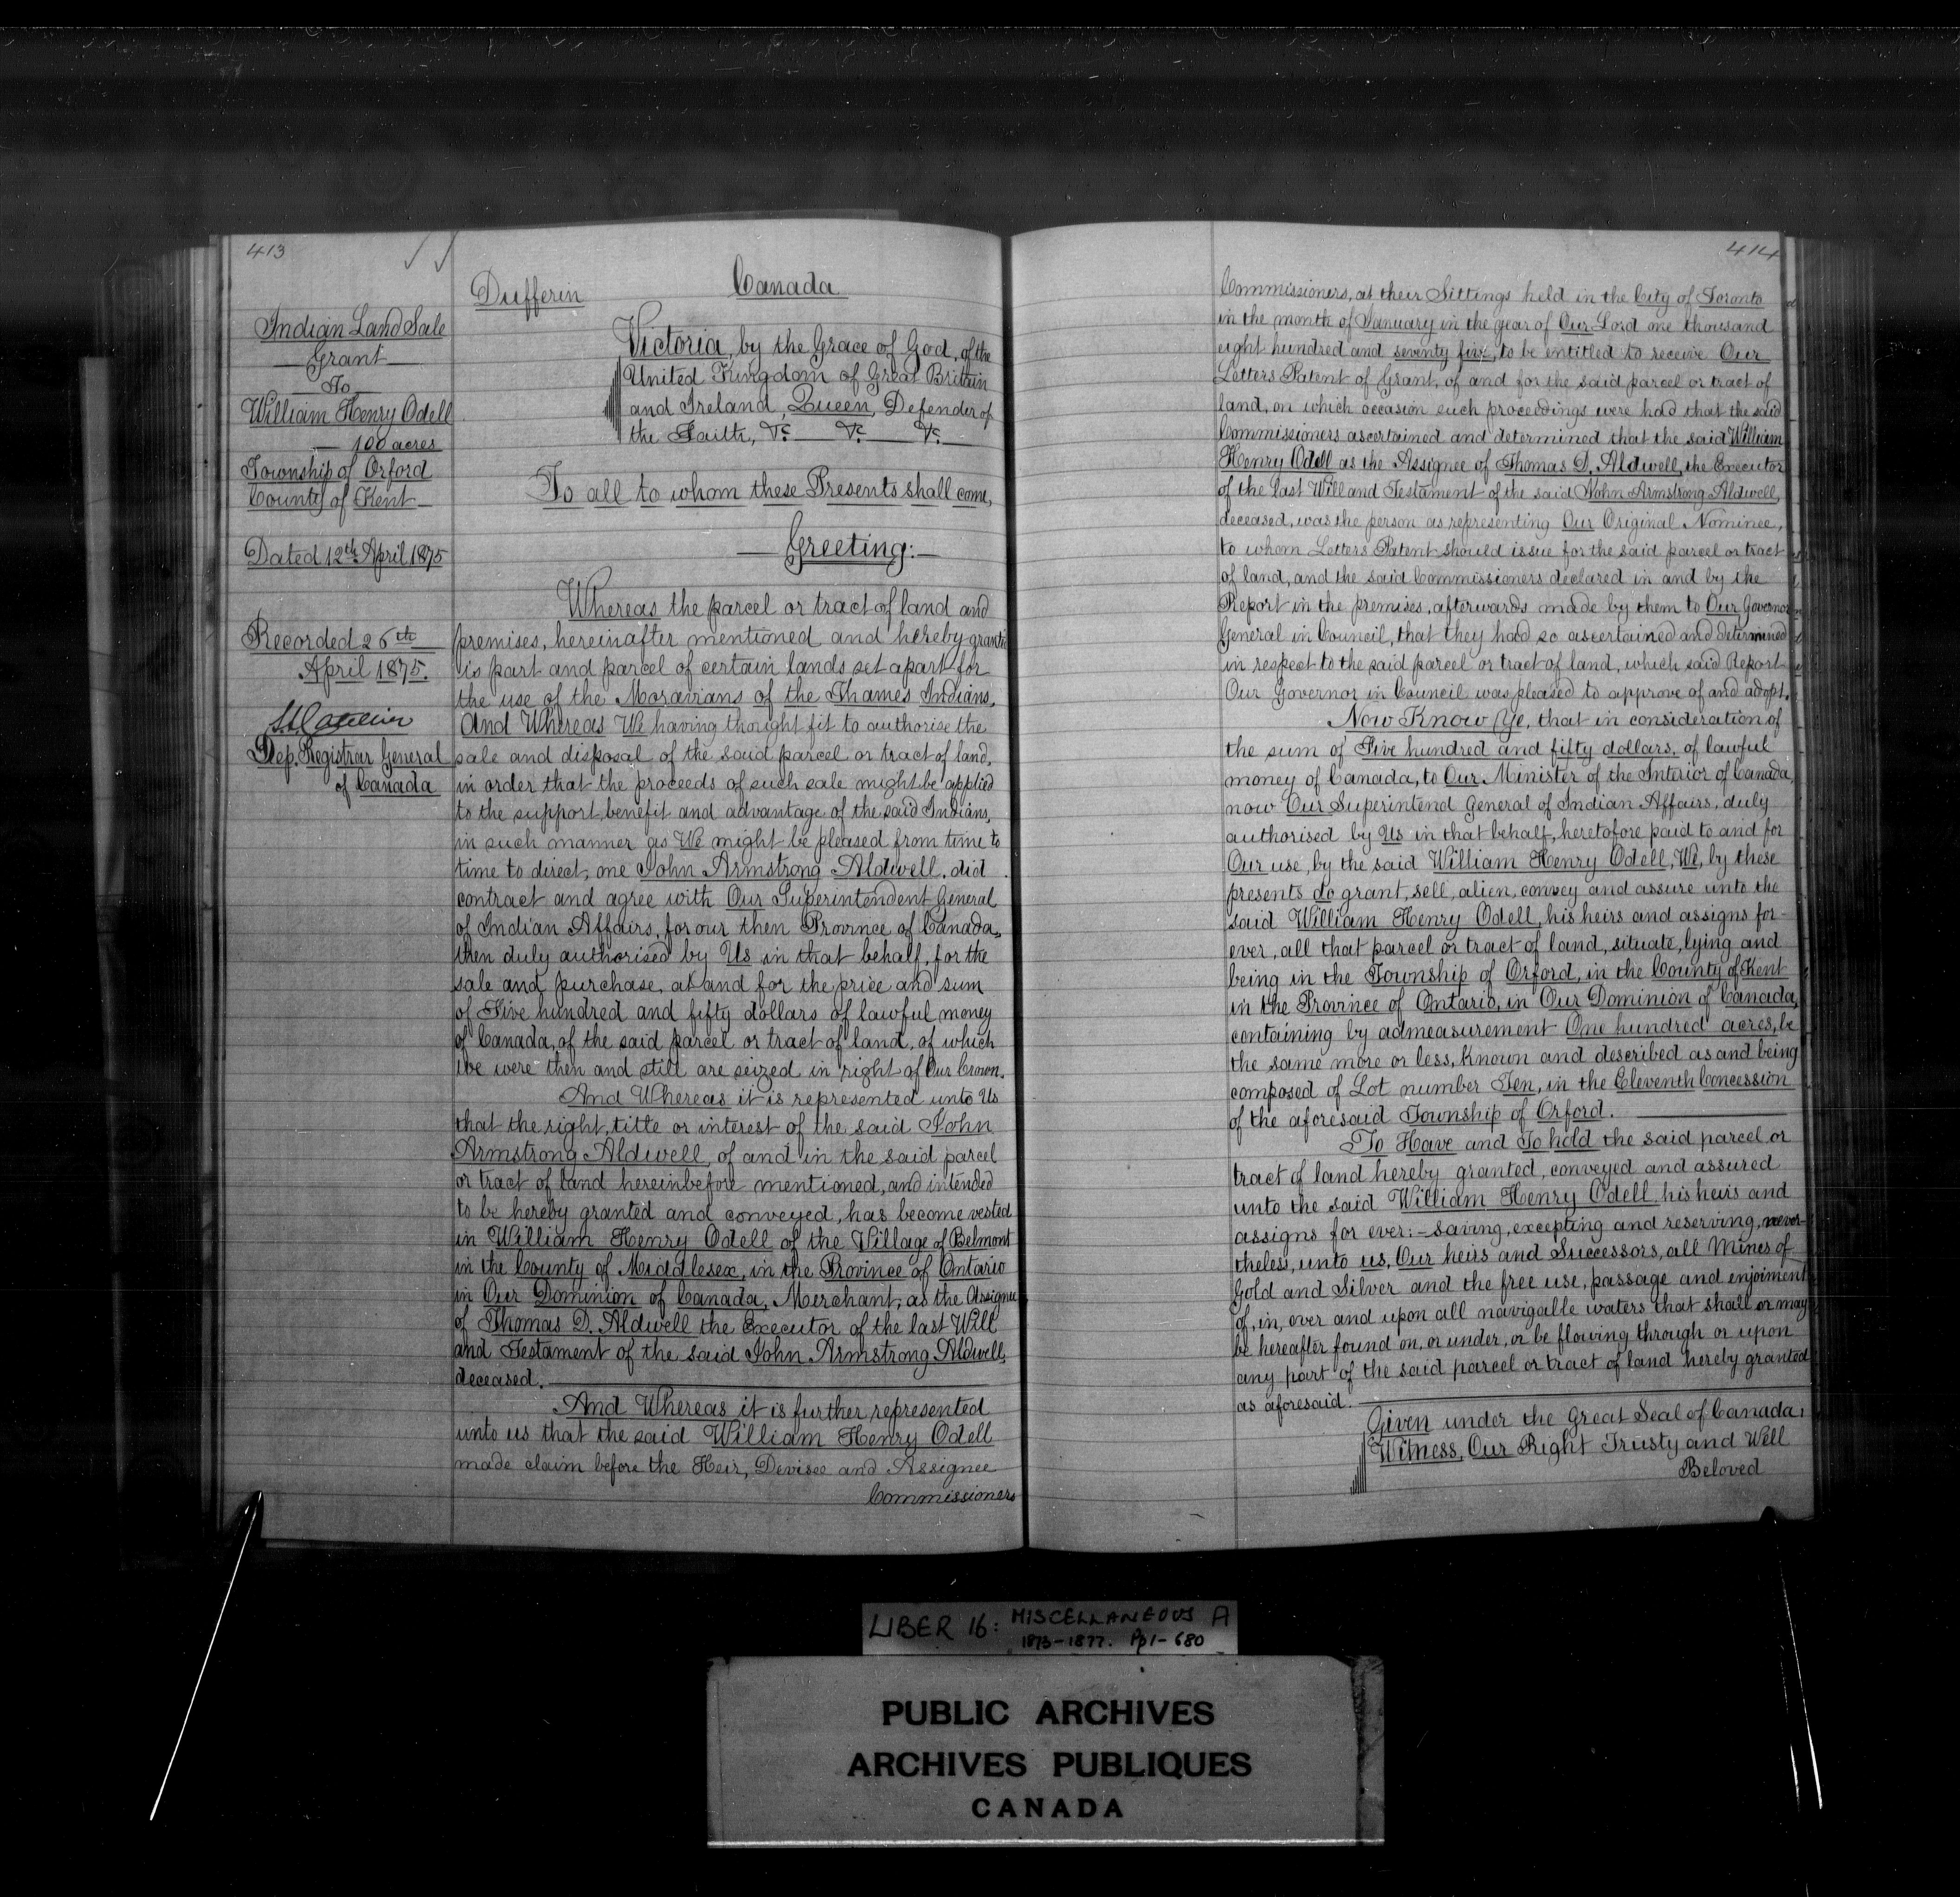 413
Indian Land Sale
Grant
To
William Henry Odell
100 acres
Township of Orford
County of Kent
Dated 12th April 1875
Recorded 26th
April 1875.
Dep. Registrar General
of Canada
Dufferin
Canada
Victoria, by the Grace of God, of the
United Kingdom of Great Britain
and Ireland, Queen, Defender of
the Faith, &c. &c. &c.
To all to whom these Presents shall come,
Greeting:
Whereas the parcel or tract of land and
premises, hereinafter mentioned and hereby granted
is part and parcel of certain lands set apart for
the use of the Moravians of the Thames Indians,
And Whereas We having thought fit to authorise the
sale and disposal of the said parcel or tract of land,
in order that the proceeds of such sale might be applied
to the support, benefit and advantage of the said Indians,
in such manner as We might be pleased from time to
time to direct, one John Armstrong Aldwell, did
contract and agree with Our Superintendent General
of Indian Affairs, for our then Province of Canada,
then duly authorised by Us in that behalf, for the
sale and purchase, at and for the price and sum
of Five hundred and fifty dollars of lawful money
of Canada, of the said parcel or tract of land, of which
We were then and still are seized in right of Our Crown.
And Whereas it is represented unto Us
that the right, title or interest of the said John
Armstrong Aldwell, of and in the said parcel
or tract of land hereinbefore mentioned, and intended
to be hereby granted and conveyed, has become vested
in William Henry Odell of the Village of Belmont
in the County of Middlesex, in the Province of Ontario
in Our Dominion of Canada, Merchant, as the Assignee
of Thomas D. Aldwell the Executor of the last Will
and Testament of the said John Armstrong Aldwell,
deceased.
And Whereas it is further represented
unto us that the said William Henry Odell
made claim before the Heir, Devisee and Assignee
Commissioners
414
Commissioners, at their Sittings held in the City of Toronto
in the month of January in the year of Our Lord one thousand
eight hundred and seventy five, to be entitled to receive Our
Letters Patent of Grant, of and for the said parcel or tract of
land, on which occasion such proceedings were had that the said
Commissioners ascertained and determined that the said William
Henry Odell as the Assignee of Thomas D. Aldwell, the Executor
of the last Will and Testament of the said John Armstrong Aldwell,
deceased, was the person as representing Our Original Nominee,
to whom Letters Patent should issue for the said parcel or tract
of land, and the said Commissioners declared in and by the
Report in the premises, afterwards made by them to Our Governor
General in Council, that they had so ascertained and determined
in respect to the said parcel or tract of land, which said Report
Our Governor in Council was pleased to approve of and adopt.
Now Know Ye, that in consideration of
the sum of Five hundred and fifty dollars, of lawful
money of Canada, to Our Minister of the Interior of Canada,
now Our Superintend General of Indian Affairs, duly
authorised by Us in that behalf, heretofore paid to and for
Our use, by the said William Henry Odell, We, by these
presents do grant, sell, alien, convey and assure unto the
said William Henry Odell, his heirs and assigns for-
ever, all that parcel or tract of land, situate, lying and
being in the Township of Orford, in the County of Kent
in the Province of Ontario, in Our Dominion of Canada,
containing by admeasurement One hundred acres, be
the same more or less, Known and described as and being
composed of Lot number Ten, in the Eleventh Concession
of the aforesaid Township of Orford.
To Have and To hold the said parcel or
tract of land hereby granted, conveyed and assured
unto the said William Henry Odell, his heirs and
assigns for ever:- saving, excepting and reserving, never-
theless, unto us, Our heirs and Successors, all Mines of
Gold and Silver and the free use, passage and enjoiment
of, in, over and upon all navigable waters that shall or may
be hereafter found on, or under, or be flowing through or upon
any part of the said parcel or tract of land hereby granted
as aforesaid.
Given under the Great Seal of Canada:
Witness, Our Right Trusty and Well
Beloved
LIBER 16: MISCELLANEOUS A
1873-1877. Pp 1-680
PUBLIC ARCHIVES
ARCHIVES PUBLIQUES
CANADA